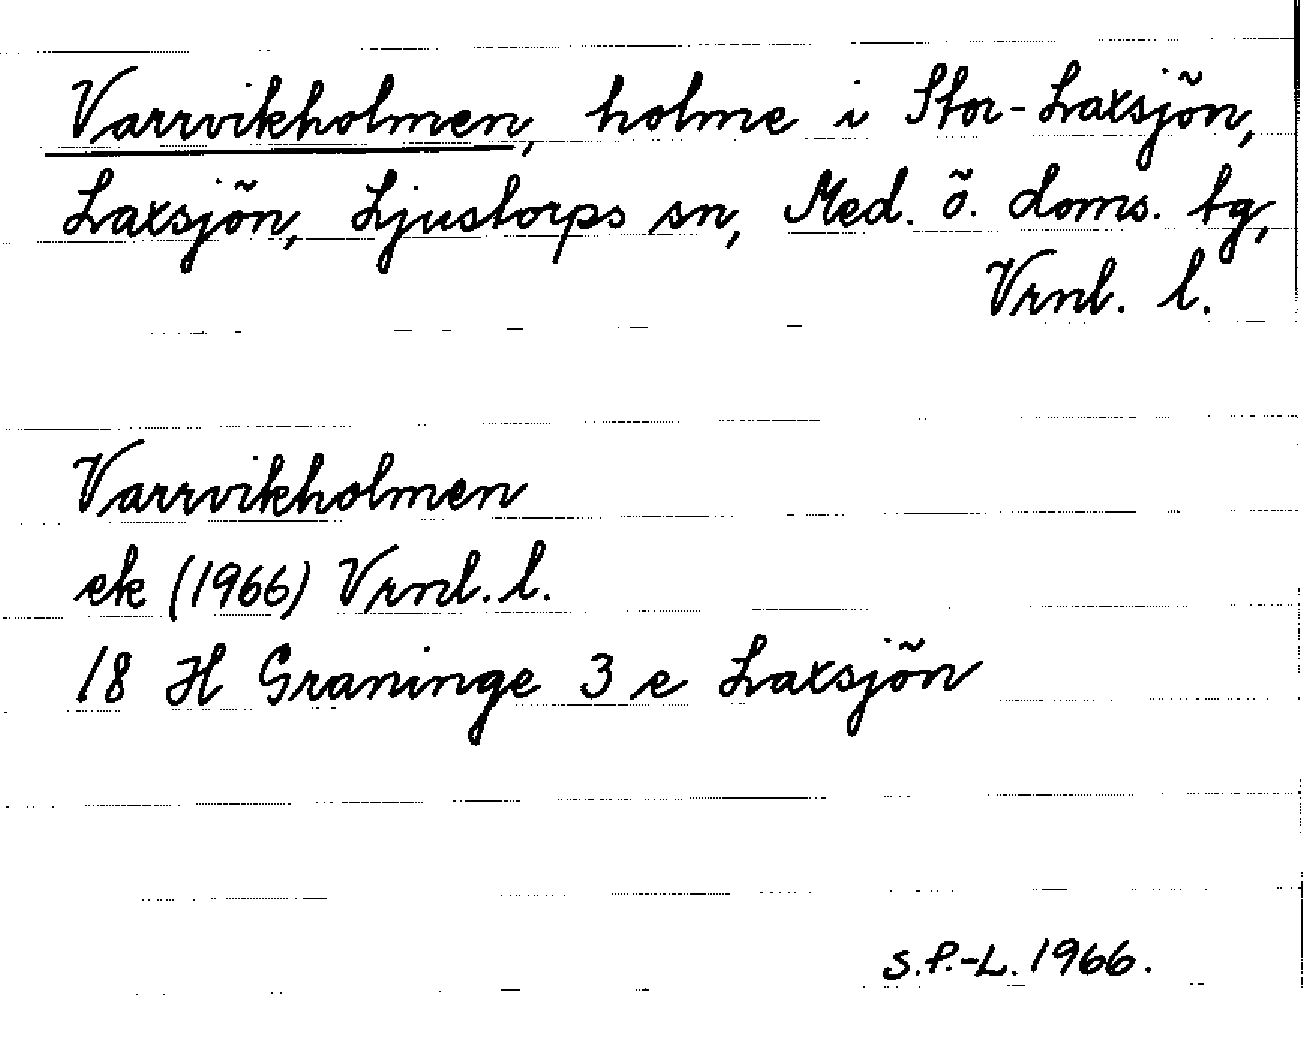 Varrvikholmen, holme i Stor-Laxsjön,
Laxsjön, Ljustorps sn, Med. ö. doms. tg,
Vrnl. l.
Varrvikholmen
ek (1966) Vrnl. l.
18 H Graninge 3 e Laxsjön
S.P.-L. 1966.